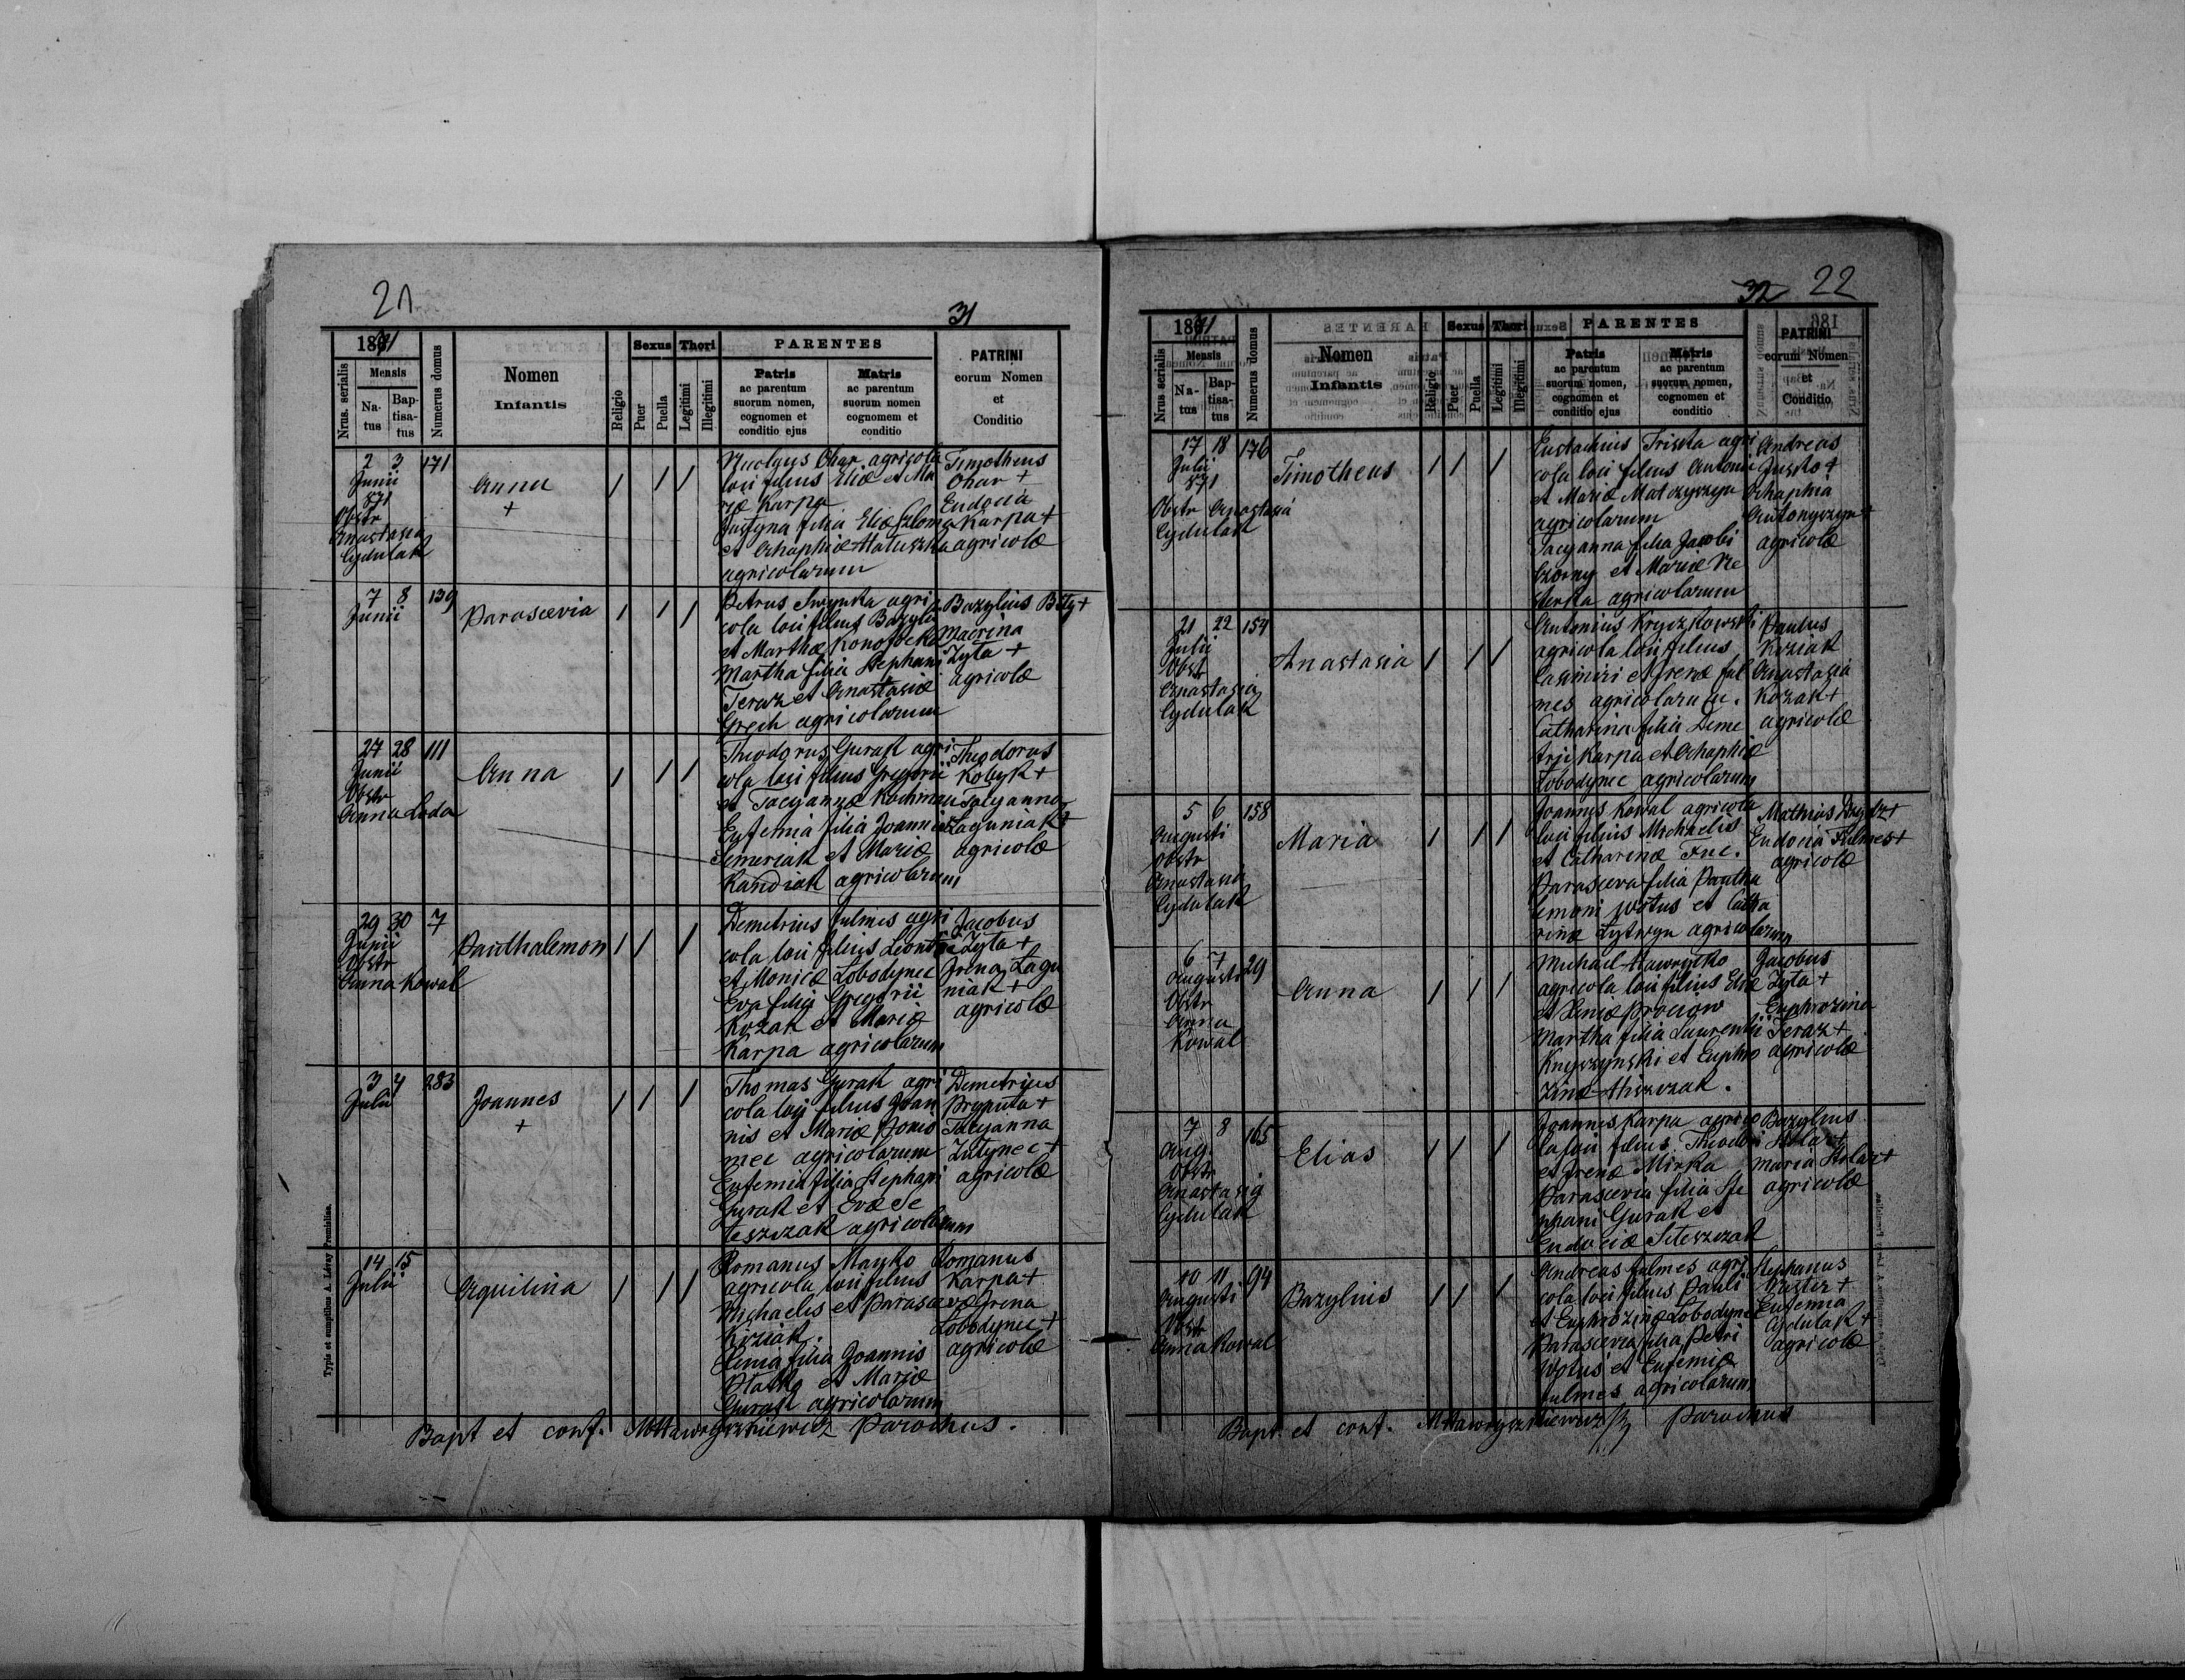 21
31
1871
Nrus. serialis
Mensis
Na-
tus
Bap-
tisa-
tus
Numerus domus
Nomen
Infantis
Religio
Sexus
Puer
Puella
Thori
Legitimi
Illegitimi
PARENTES
Patris
ac parentum
suorum nomen,
cognomen et
conditio ejus
Matris
ac parentum
suorum nomen
cognomem et
conditio
PATRINI
eorum Nomen
et
Conditio
2 3 171
Junii
871
Obstr
Anastasia
Cydulak
Anna
+
Nicolaus Ohar agricola
loci filius Eliæ et Ma
riæ Karpa
Justyna filia Eliæ
et Ahaphiæ Matuszka
agricolarum
Timotheus
Ohar +
Eudocia
Karpa +
agricolæ
7 8 139
Junii
Parascevia
Petrus agri
cola loci filius Bazylii
et Marthæ
Martha filia Stephani
Teraz et Anastasiæ
Grech agricolarum
Bazylius Bilyj +
Macrina
Zyla +
agricolæ
27 28 111
Junii
Obstr
Anna Loda
Anna
Theodorus Gurak agri
cola loci filius Gregorii
et Tacyannæ Kochman
Eufemia filia Joannis
Semeriak et Mariæ
Kandiak agricolarum
Theodorus
Kobyk +
Tacyanna
Laguniak +
agricolæ
29 30 7
Junii
Obstr
Anna Kowal
Panthalemon
Demetrius Fulmes agri
cola loci filius Leontii
et Monicæ Lobodynec
Eva filia Gregorii
Kozak et Mariæ
Karpa agricolarum
Jacobus
Zyla +
Irena Lagu
niak +
agricolæ
3 4 283
Julii
Joannes
+
Thomas Gurak agri
cola loci filius Joan
nis et Mariæ
mec agricolarum
Eufemia filia Stephani
Gurak et Evæ Se
teszczak agricolarum
Demetrius
Pryputa +
Tacyanna
Lutynec +
agricolæ
14 15
Julii
Aquilina
Romanus Mayko
agricola loci filius
Michaelis et Parascevæ
Kiziak.
Xenia filia Joannis
et Mariæ
Gurak agricolarum
Romanus
Karpa +
Irena
Lobodynec +
agricolæ
Bapt et conf. MHawryszkiewicz Parochus.
Typis et sumptibus A. Léray Premisliae.
32 22
1871
Nrus serialis
Mensis
Na-
tus
Bap-
tisa-
tus
Numerus domus
Nomen
Infantis
Religio
Sexus
Puer
Puella
Thori
Legitimi
Illegitimi
PARENTES
Patris
ac parentum
suorum nomen,
cognomen et
conditio ejus
Matris
ac parentum
suorum nomen,
cognomen et
conditio
PATRINI
eorum Nomen
et
Conditio
17 18 176
Julii
871
Obstr Anastasia
Cydulak
Timotheus
Eustachius Triska agri
cola loci filius Antonii
et Mariæ Matczyszyn
agricolarum
Tacyanna filia Jacobi
Czorny et Mariæ Ne
sterka agricolarum
Andreas
Jusko +
Ahaphia
Antonyszyn +
agricolæ
21 22 154
Julii
Obst
Anastasia
Cydulak
Anastasia
Antonius Kryczkowski
agricola loci filius
Casimiri et Irenæ Ful
mes agricolarum.
Catharina filia Deme
trii Karpa et Ahaphiæ
Lobodynec agricolarum
Paulus
Koziak
Anastasia
Kozak +
agricolæ
5 6 158
Augusti
Obstr
Anastasia
Cydulak
Maria
Joannes Kowal agricola
loci filius Michaelis
et Catharinæ Fuc.
Parasceva filia Pantha
lemoni Wotus et Catha
rinæ Lytwyn agricolarum
Mathias +
Eudocia Fulmes +
agricolæ
6 7 29
Augusti
Obstr
Anna
Kowal
Anna
Michael Hawrytko
agricola loci filius Eliæ
et Xeniæ Prociow
Martha filia Laurentii
Knyszynski et Euphro
zinæ Hirczak.
Jacobus
Zyla +
Euphrozina
Teraz +
agricolæ
7 8 165
Aug.
Obstr
Anastasia
Cydulak
Elias
Joannes Karpa agrico
la loci filius Theodori
et Irenæ Mirka
Parascevia filia Ste
phani Gurak et
Eudociæ Seteszczak
Bazylius
Stolar +
Maria Stolar +
agricolæ
10 11 94
Augusti
Obst
Anna Kowal
Bazylius
Andreas Fulmes agri
cola loci filius Pauli
et Euphrozinæ Lobodynec
Parascevia filia Petri
Wotus et Eufemiæ
Fulmes agricolarum
Stephanus
Nester +
Eufemia
Cydulak +
agricolæ
Bapt. et conf. MHawryszkiewicz Parochus